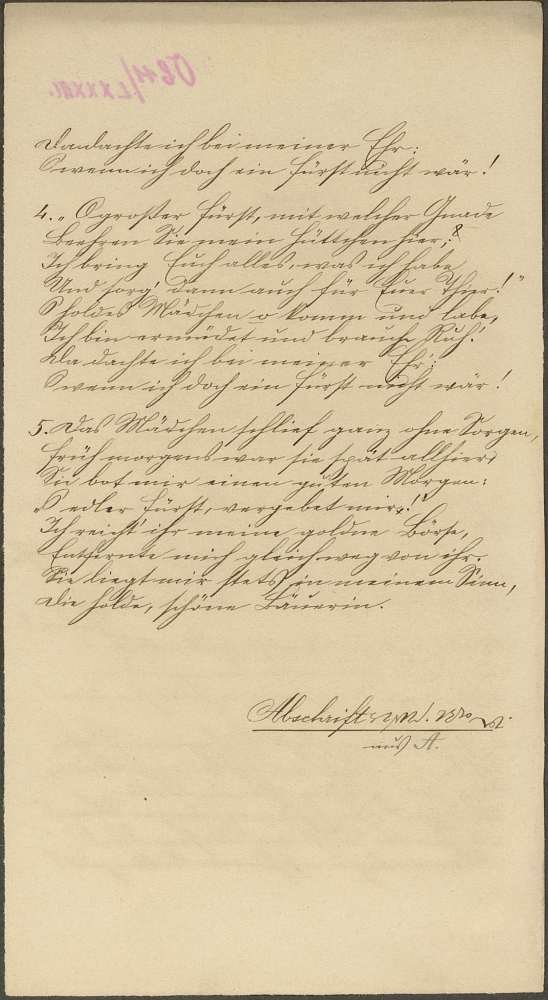 Da dachte ich bei meiner Ehr:
O wenn ich doch ein Fürst nicht wär!
4. „O großer Fürst, mit welcher Gnade
Beehren Sie mein Hüttchen hier;
Ich bring' Euch alles, was ich habe
Und sorg' dann auch für Euer Thier!"
O holdes Mädchen o komm und labe,
Ich bin ermüdet und brauche Ruh!
Da dachte ich bei meiner Ehr:
O wenn ich doch ein Fürst nicht wär!
5. Das Mädchen schlief ganz ohne Sorgen,
Früh morgens war sie spät allhier;
Sie bot mir einen guten Morgen:
„O edler Fürst, vergebet mir!"
Ich reicht' ihr meine goldne Börse,
Entfernte mich gleich weg von ihr.
Sie liegt mir stets in meinem Sinn,
Die holde, schöne Bäuerin.
Abschrift
aus A.